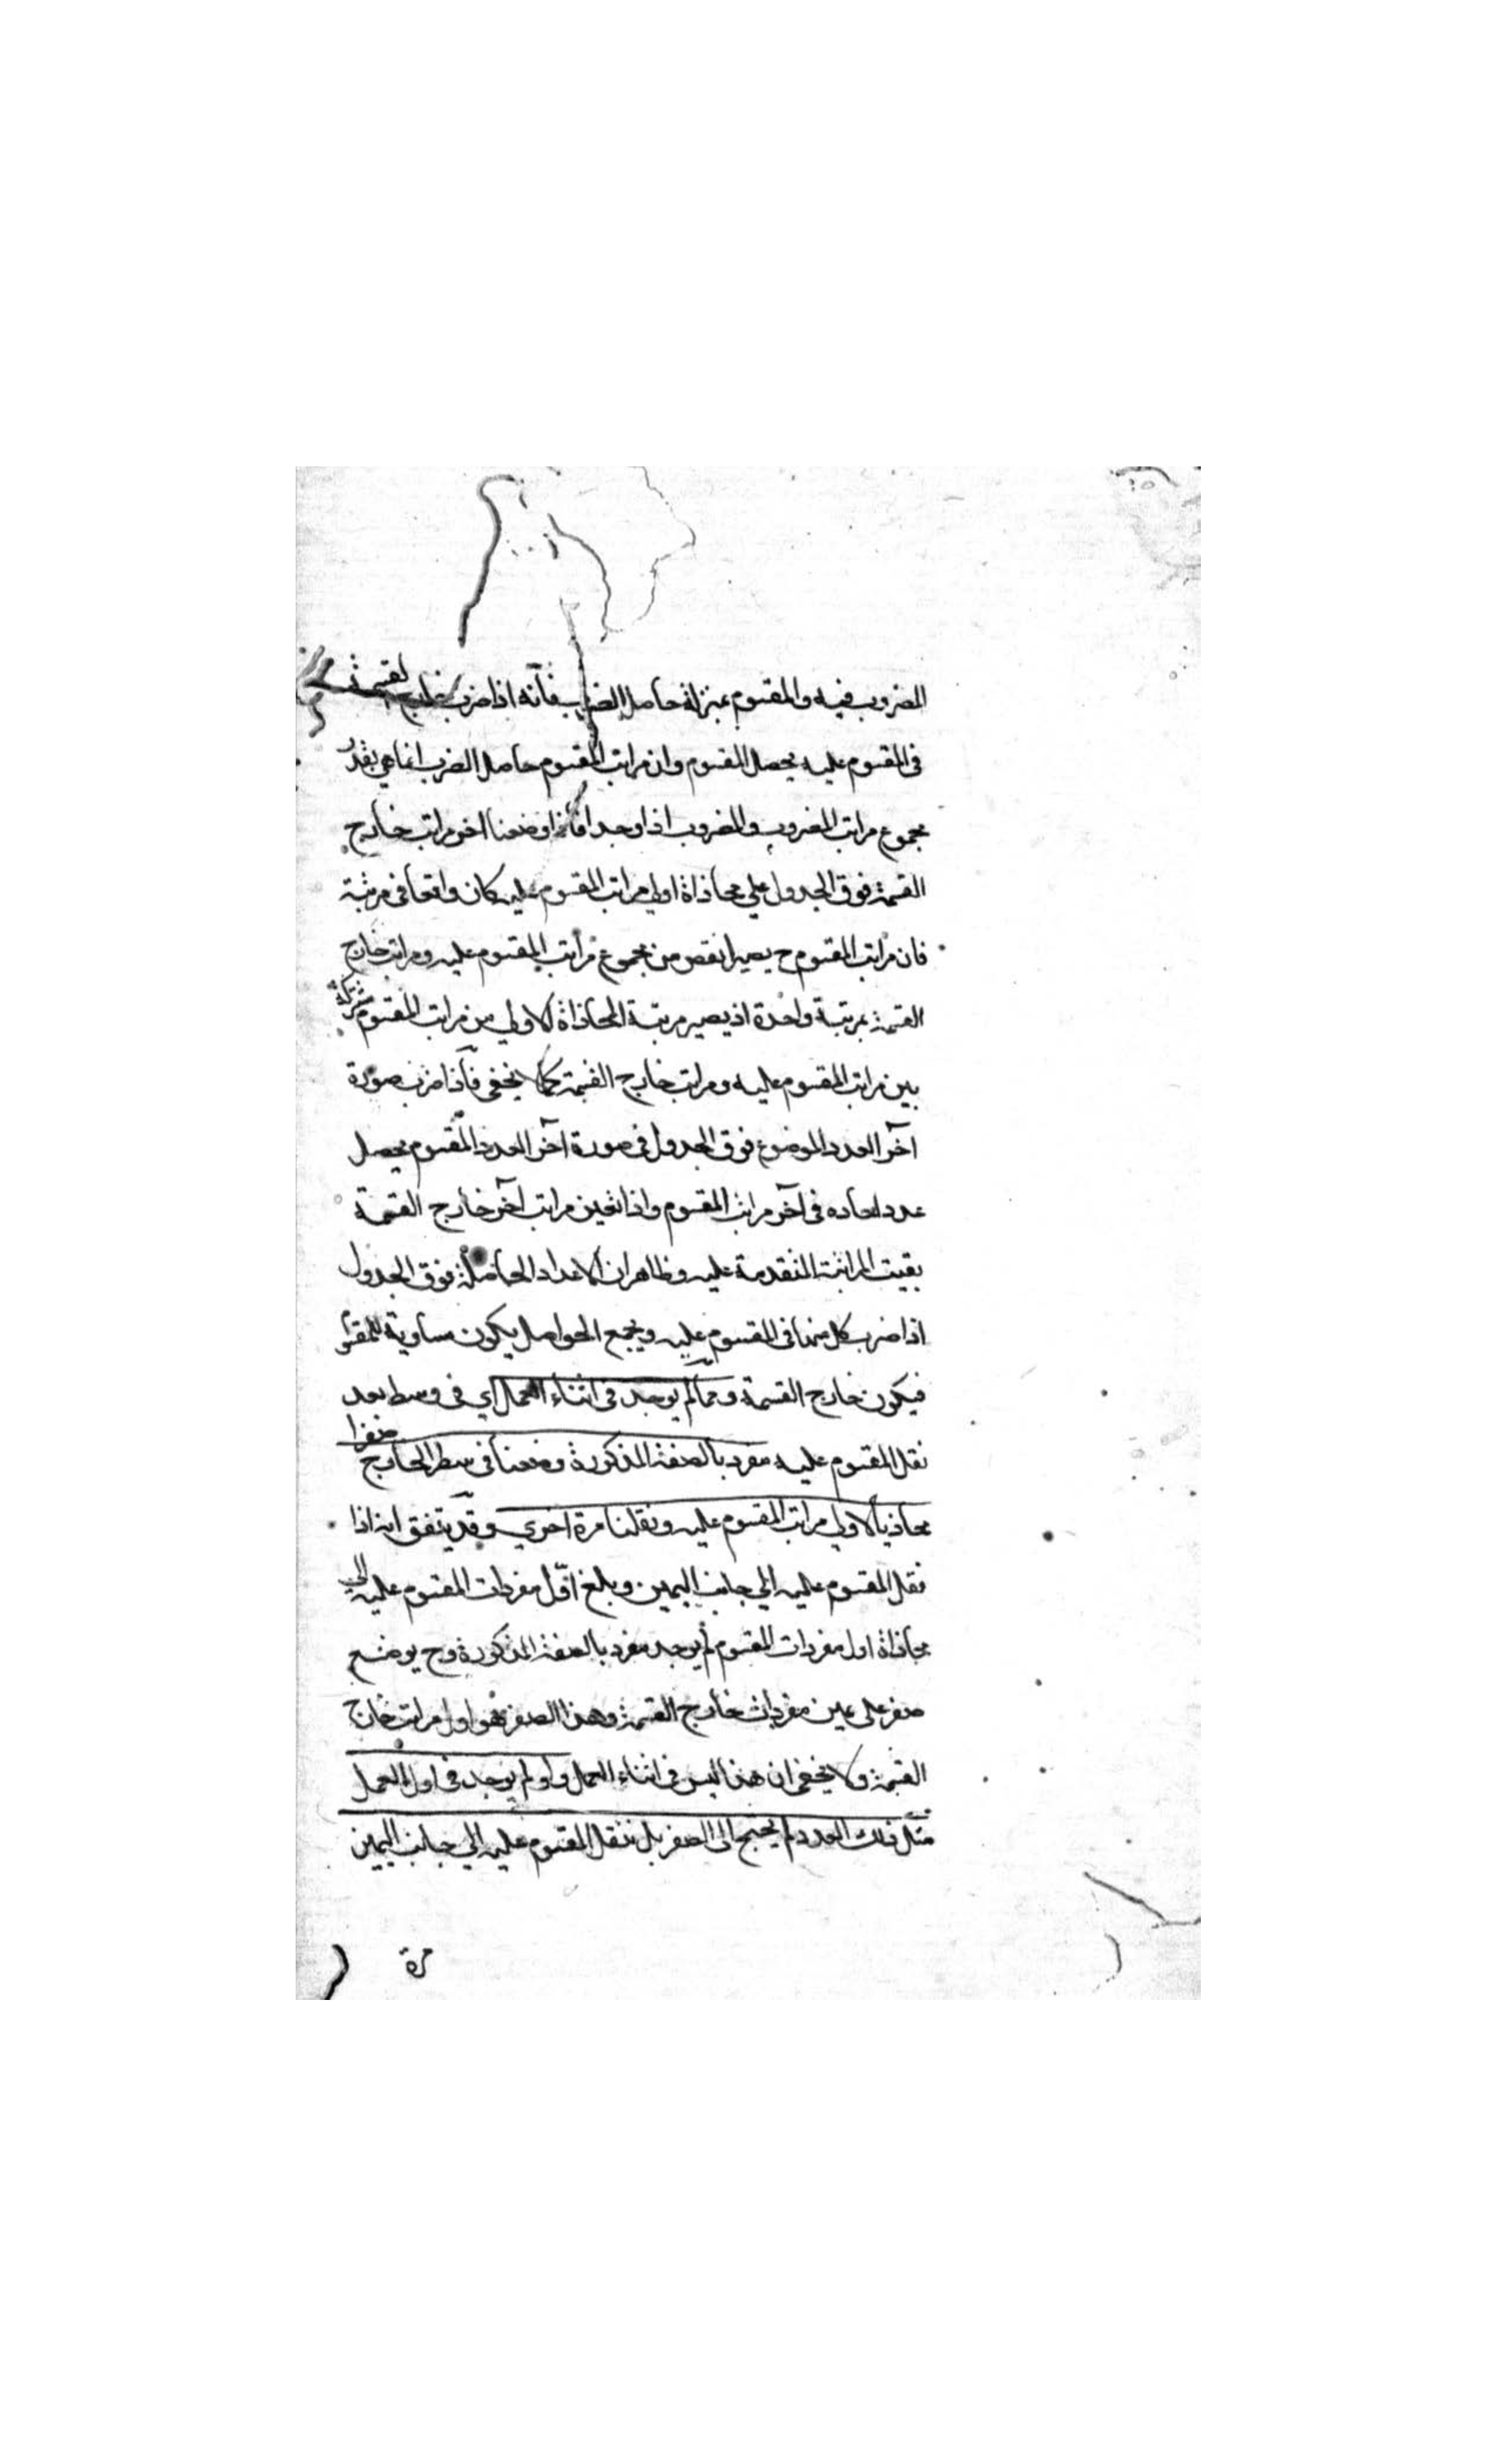 المضروب فيه والمقسوم بمنزلة حاصل الضرب فانه اذا ضرب خارج القسمة
فى المقسوم عليه يحصل المقسوم وان مراتب المقسوم حاصل الضرب انما هي بقدر
مجموع مراتب المضروب والمضروب اذا وجد فاذا وضعنا اخر مراتب خارج
القسمة فوق الجدول علي محاذاة اولي مراتب المقسوم عليه كان واقعا في مرتبة
فان مراتب المقسوم ح يصير انقص من مجموع مراتب المقسوم عليه ومراتب خارج
القسمة بمرتبة واحدة اذ يصير مرتبة المحاذاة الاولي من مراتب المقسوم مشتركة
بين مراتب المقسوم عليه ومراتب خارج القسمة كما لا يخفى فاذا ضرب صورة
آخر العدد الموضوع فوق الجدول في صورة آخر العدد المقسوم يحصل
عدد احاده في آخر مراتب المقسوم واذا تعين مراتب آخر خارج القسمة
بقيت المراتبة المتقدمة عليه وظاهر ان الاعداد الحاصلة فوق الجدول
اذا ضرب كل منها فى المقسوم عليه ويجمع الحواصل يكون مساوية للمقسوم
فيكون خارج القسمة ومما لم يوجد فى اثناء العمل اي فى وسط بعد
نقل المقسوم عليه مفرد بالصفة المذكورة وضعنا في سطر الخارج صفرا
محاذيا لاولي مراتب المقسوم عليه ونقلنا مرة اخري وقد يتفق انه اذا
نقل المقسوم عليه الي جانب اليمين وبلغ اوّل مفردات المقسوم عليه الي
محاذاة اول مفردات المقسوم لم يوجد مفرد بالصفة المذكورة وح يوضع
صفر على يمين مفردات خارج القسمة وهذا الصفر هو اول مراتب خارج
القسمة ولا يخفى ان هذا ليس فى اثناء العمل ولو لم يوجد فى اول العمل
مثل ذلك العدد لم يحتج الى الصفر بل ننقل المقسوم عليه الي جانب اليمين
مرة